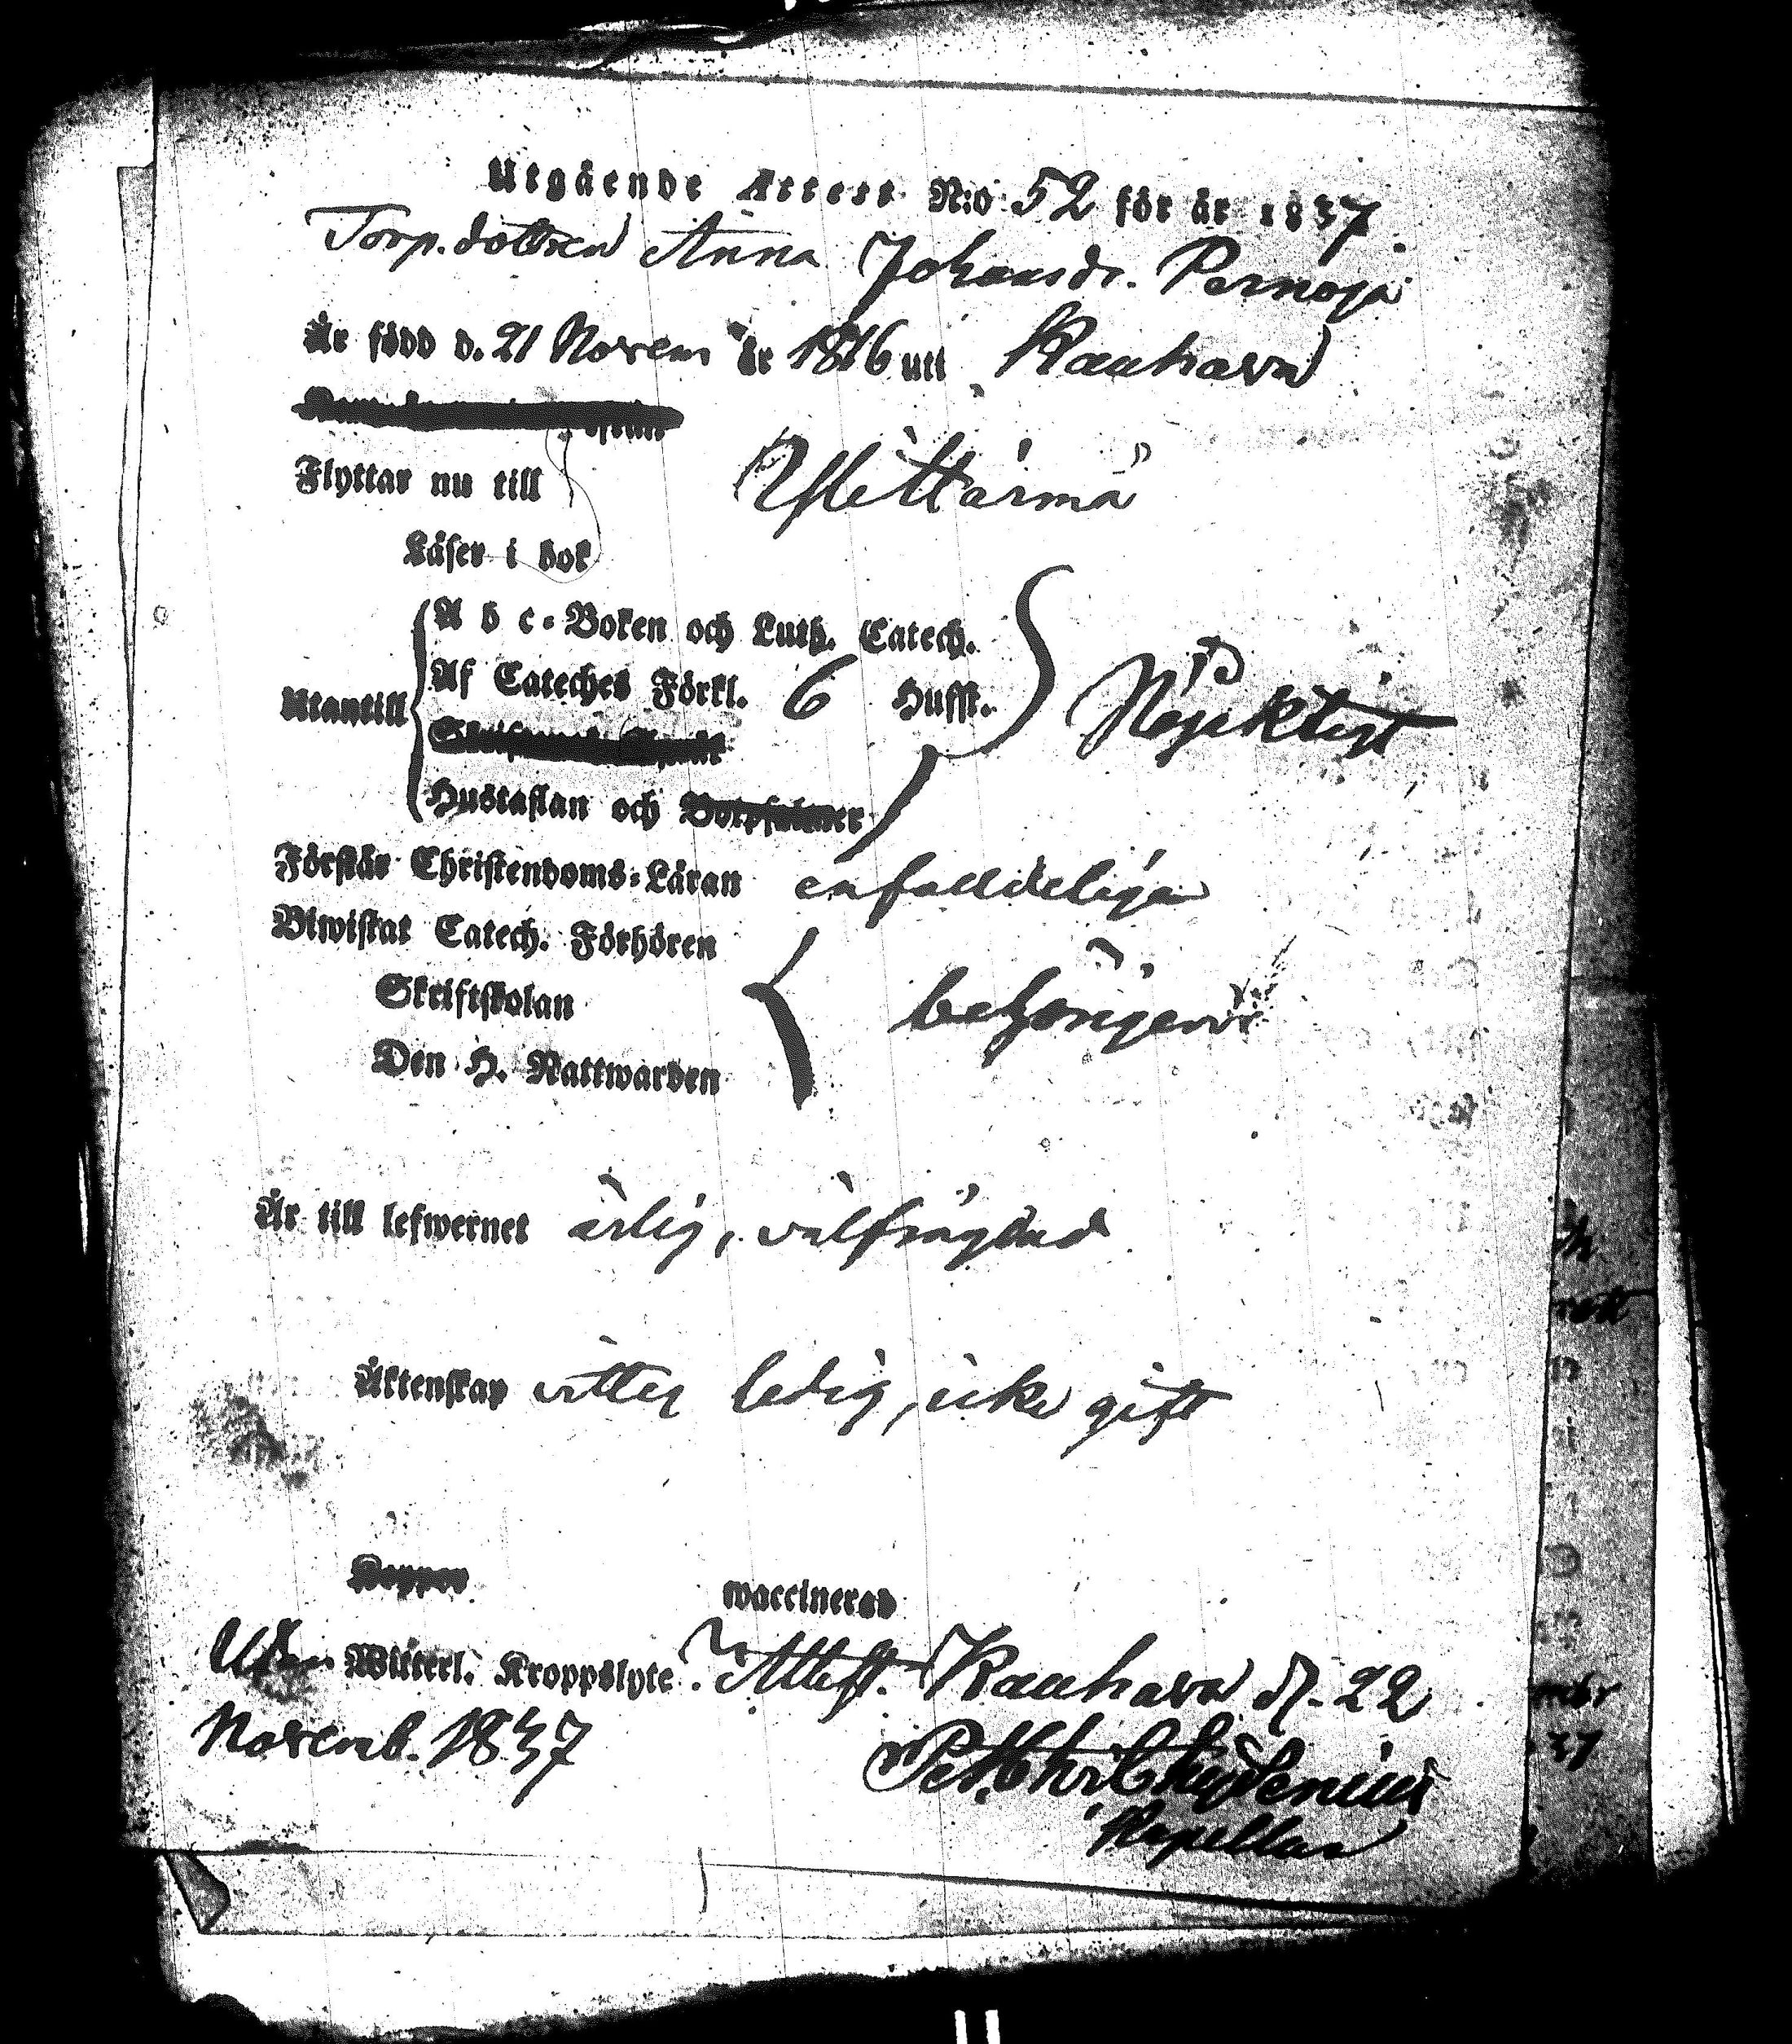 Utgående Attest N:o 52 för år 1837.
Torp.dottren Anna Johansdr. Pernaja
Är född d. 21 Novem år 1816 uti Kauhava
Flyttar nu till Ylihärmä
Läser i bok
A b c-Boken och Luth. Catech.
Utantill Af Cateches Förkl. 6 Hufst.
Hustaflan och Botpsalmer
Förstår Christendoms-Läran enfalldeligen
Biwistat Catech. Förhören
Skriftskolan behörigen
Den H. Nattwarden
Är till lefwernet ärlig, välfrägdad
Äktenskap ledig, icke gift
Koppor waccinerad
Utan Witterl. Kroppslyte. Attest. Kauhava d. 22
Novemb. 1837
Kapellan